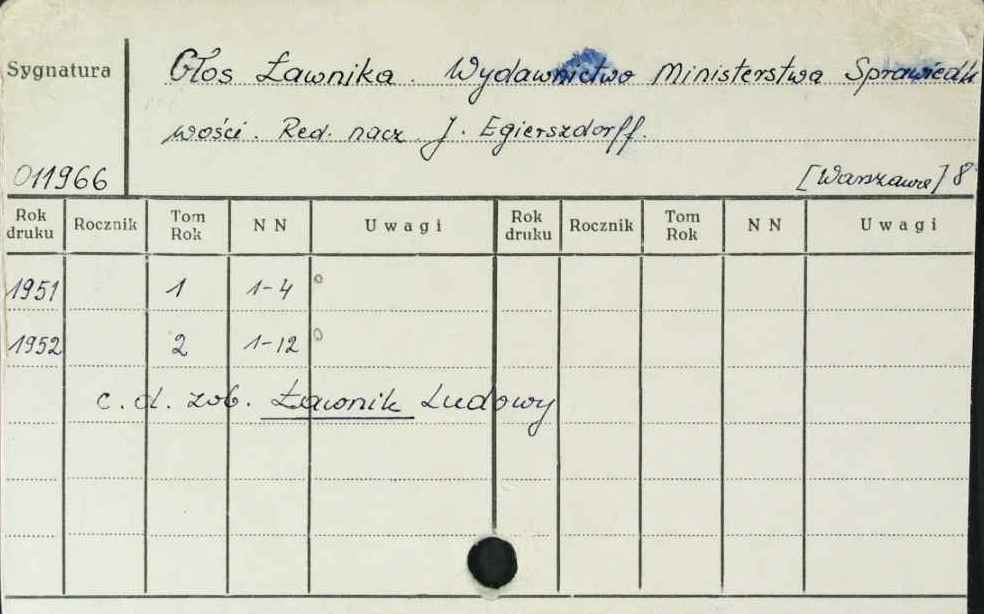 Sygnatura
Głos Ławnika. Wydawnictwo Ministerstwa Sprawiedli
wości. Red. nacz. J. Egierszdorff.
011966
[Warszawa] 8°
Rok druku Rocznik Tom Rok N N Uwagi Rok druku Rocznik Tom Rok N N Uwagi
1951 1 1-4 o
1952 2 1-12 o
c. d. zob. Ławnik Ludowy